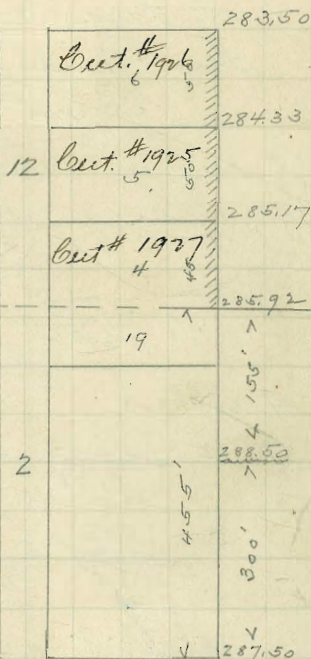 283.50
Cert. #1926
6
284.33
12
Cert. #1925
5
50
285.17
Cert # 1927
4
45
285.92
19
155'
2
288.50
455'
300'
287.50